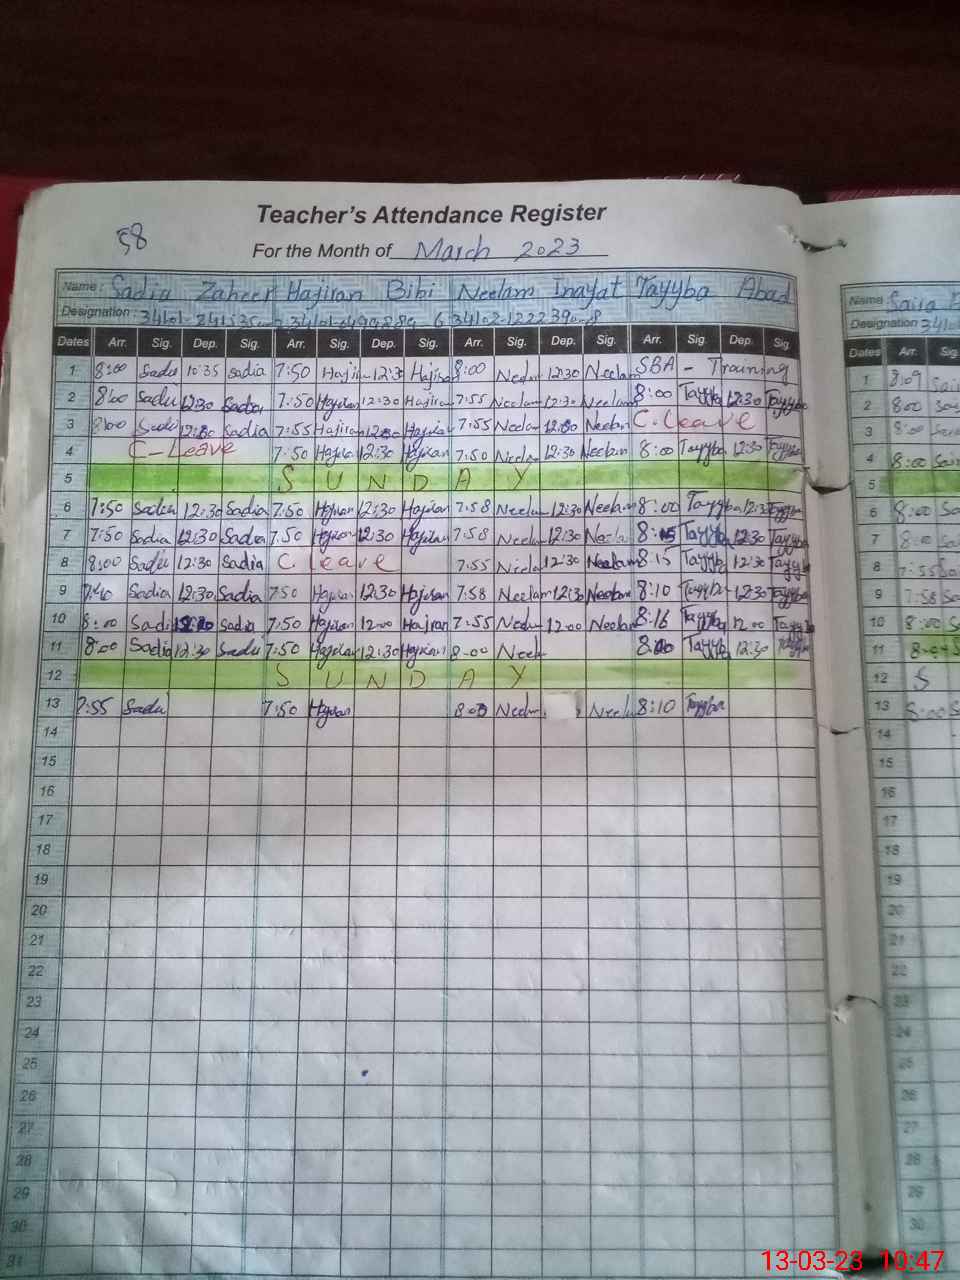 Teacher's Attendance Register
58
For the Month of March 2023
Name: Sadia Zaheer Hajiran Bibi Neelam Inayat Tayyba Abad
Name: Saira
Designation: 34101-
Designation 3410
Dates Arr. Sig. Dep. Sig. Arr. Sig. Dep. Sig. Arr. Sig. Dep. Sig. Arr. Sig. Dep. Sig
Dates Arr. Sig.
1 8:00 Sadia 10:35 Sadia 7:50 Hajiran 12:30 Hajiran 8:00 Neelam 12:30 Neelam SBA - Training
1 8:09
2 8:00 Sadia 12:30 Sadia 7:50 Hajiran 12:30 Hajiran 7:55 Neelam 12:30 Neelam 8:00 Tayyba 12:30 Tayyba
2 8:00
3 8:00 Sadia 12:30 Sadia 7:55 Hajiran 12:30 Hajiran 7:55 Neelam 12:30 Neelam C.Leave
3 8:00
4 C-Leave 7:50 Hajiran 12:30 Hajiran 7:50 Neelam 12:30 Neelam 8:00 Tayyba 12:30 Tayyba
4 8:00
5 S U N D A Y
5
6 7:50 Sadia 12:30 Sadia 7:50 Hajiran 12:30 Hajiran 7:58 Neelam 12:30 Neelam 8:00 Tayyba 12:30 Tayyba
6 8:00
7 7:50 Sadia 12:30 Sadia 7:50 Hajiran 12:30 Hajiran 7:58 Neelam 12:30 Neelam 8:15 Tayyba 12:30 Tayyba
7 8:00
8 8:00 Sadia 12:30 Sadia C.Leave 7:55 Neelam 12:30 Neelam 8:15 Tayyba 12:30 Tayyba
8 7:55
9 7:40 Sadia 12:30 Sadia 7:50 Hajiran 12:30 Hajiran 7:58 Neelam 12:30 Neelam 8:10 Tayyba 12:30 Tayyba
9 7:58
10 8:00 Sadia Sadia 7:50 Hajiran 12:00 Hajiran 7:55 Neelam 12:00 Neelam 8:16 Tayyba 12:00 Tayyba
10 8:00
11 8:00 Sadia 12:30 Sadia 7:50 Hajiran 12:30 Hajiran 8-00 Neelam Tayyba 12:30 Tayyba
11
12 S U N D A Y
12 S
13 7:55 Sadia 7:50 Hajiran 8:00 Neelam Neelam 8:10 Tayyba
13 8:00
14
14
15
15
16
16
17
17
18
18
19
19
20
20
21
21
22
22
23
23
24
24
25
25
26
26
27
27
28
28
29
29
30
30
31
13-03-23 10:47